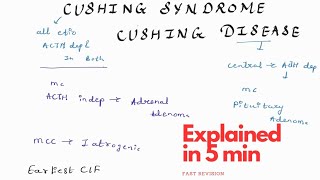 CUSHING SYNDROME
CUSHING DISEASE
all etio
ACTH dep &
In Both
central → ADH dep
mc
Pituitary
Adenoma
mc
ACTH indep → Adrenal
adenoma
mcc → Iatrogenic
Earliest C/F
Explained
in 5 min
FAST REVISION